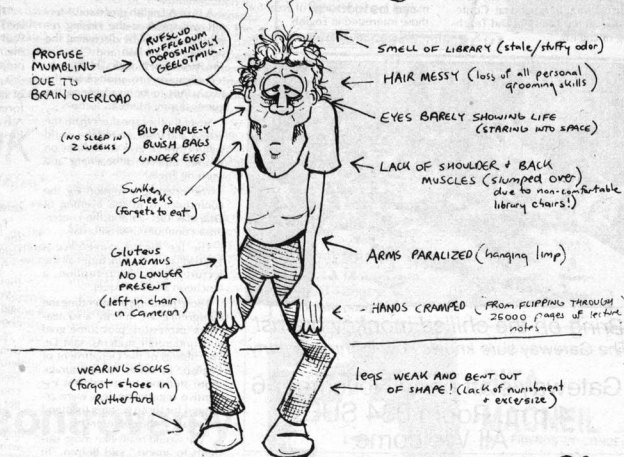 RUFSLUD
MUFFLEDUM
DOPOSHNIGLY
GEELOTMIG...
PROFUSE
MUMBLING
DUE TO
BRAIN OVERLOAD
(NO SLEEP IN
2 WEEKS)
BIG PURPLE-Y
BLUISH BAGS
UNDER EYES
Sunken
cheeks
(forgets to eat)
Gluteus
MAXIMUS
NO LONGER
PRESENT
(left in chair
in Cameron)
WEARING SOCKS
(forgot shoes in
Rutherford)
SMELL OF LIBRARY (stale/stuffy odor)
HAIR MESSY (loss of all personal
grooming skills)
EYES BARELY SHOWING LIFE
(STARING INTO SPACE)
LACK OF SHOULDER + BACK
MUSCLES (slumped over)
due to non-comfortable
library chairs!)
ARMS PARALIZED (hanging limp)
HANDS CRAMPED (FROM FLIPPING THROUGH
26000 pages of lecture
notes
legs WEAK AND BENT OUT
OF SHAPE! (Lack of nurishment
+ excersize)